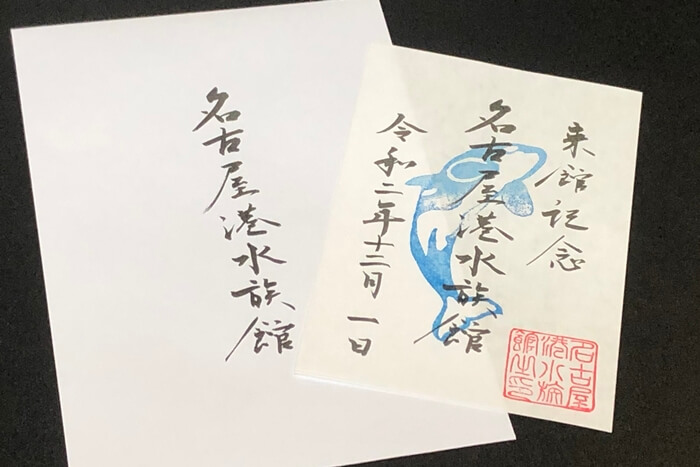 名古屋港水族館
来館記念
名古屋港水族館
令和二年十二月一日
名古屋
港水族
館之印